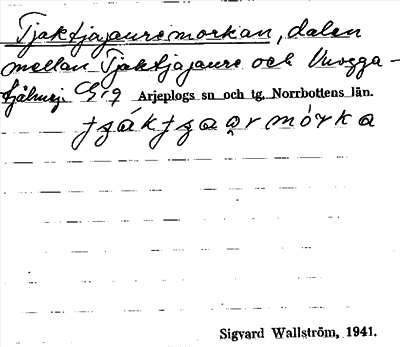 Tjaktjajauremorkan, dalen
mellan Tjaktjajaure och Vuogga-
tjålmej. G, 9 Arjeplogs sn och tg, Norrbottens län.
Sigvard Wallström, 1941.